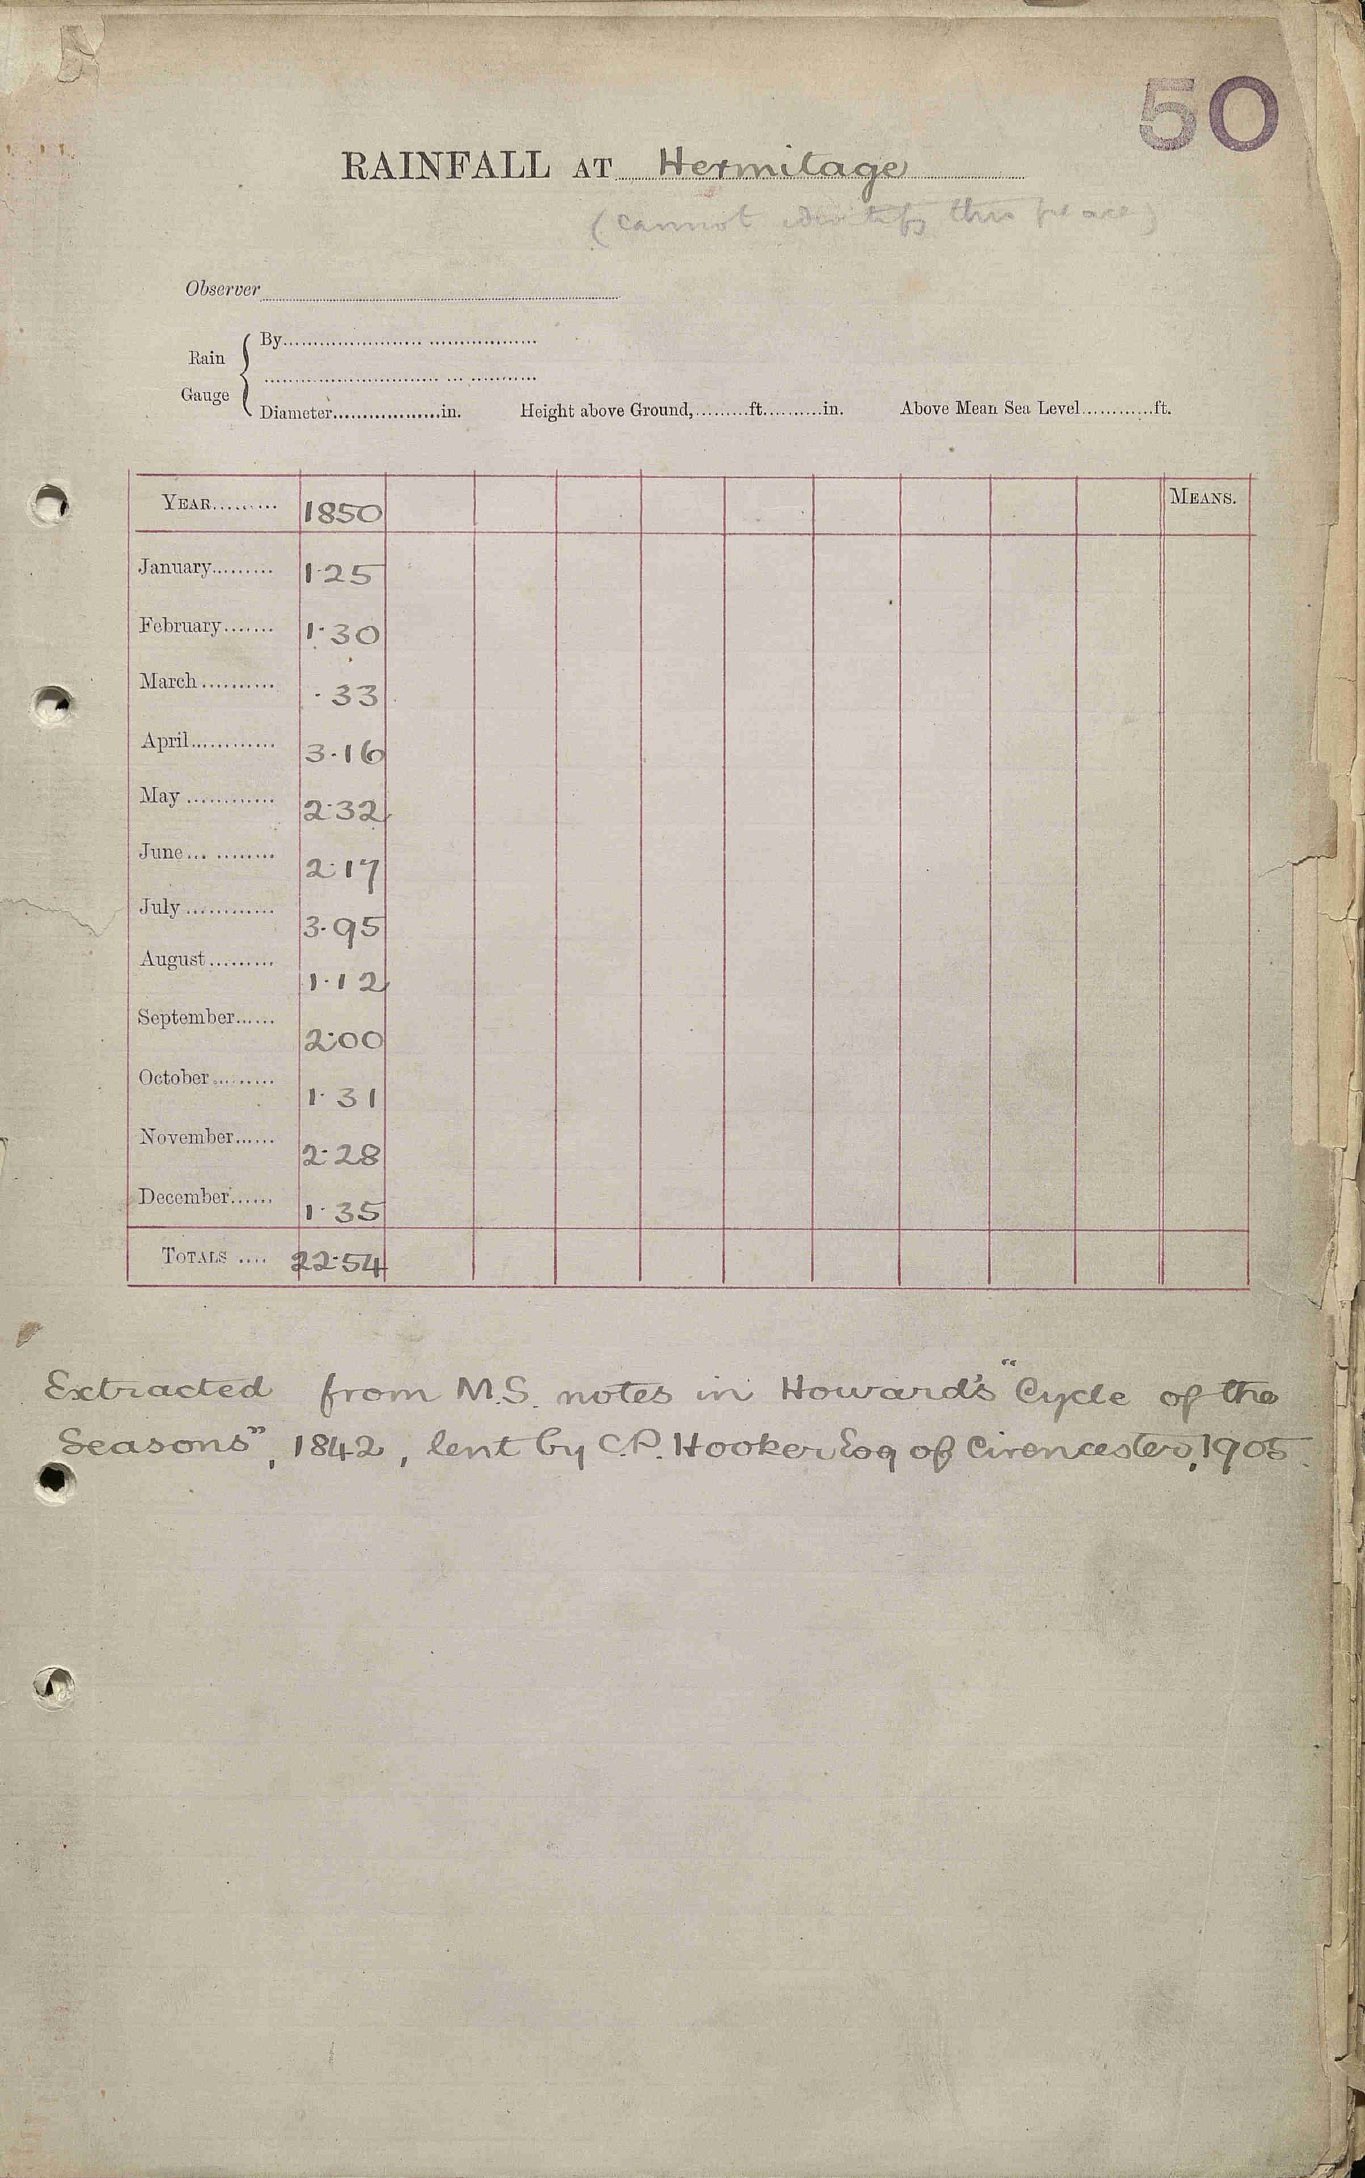 50
RAINFALL AT Hermitage
(cannot identify this place)
Observer
Rain Gauge
By
Diameter in. Height above Ground, ft. in. Above Mean Sea Level ft.
YEAR 1850 MEANS.
January 1.25
February 1.30
March .33
April 3.16
May 2.32
June 2.17
July 3.95
August 1.12
September 2.00
October 1.31
November 2.28
December 1.35
TOTALS 22.54
Extracted from M.S. notes in Howard's "Cycle of the
Seasons", 1842, lent by C.P. Hooker Esq of Cirencester, 1905.